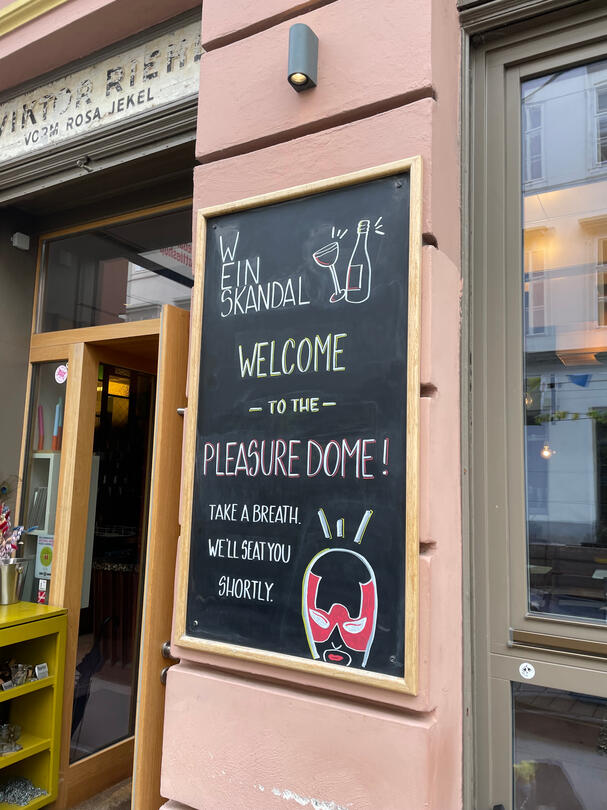 VIKTOR RIEHL
VORM ROSA JEKEL
W
EIN
SKANDAL
WELCOME
– TO THE –
PLEASURE DOME!
TAKE A BREATH.
WE'LL SEAT YOU
SHORTLY.